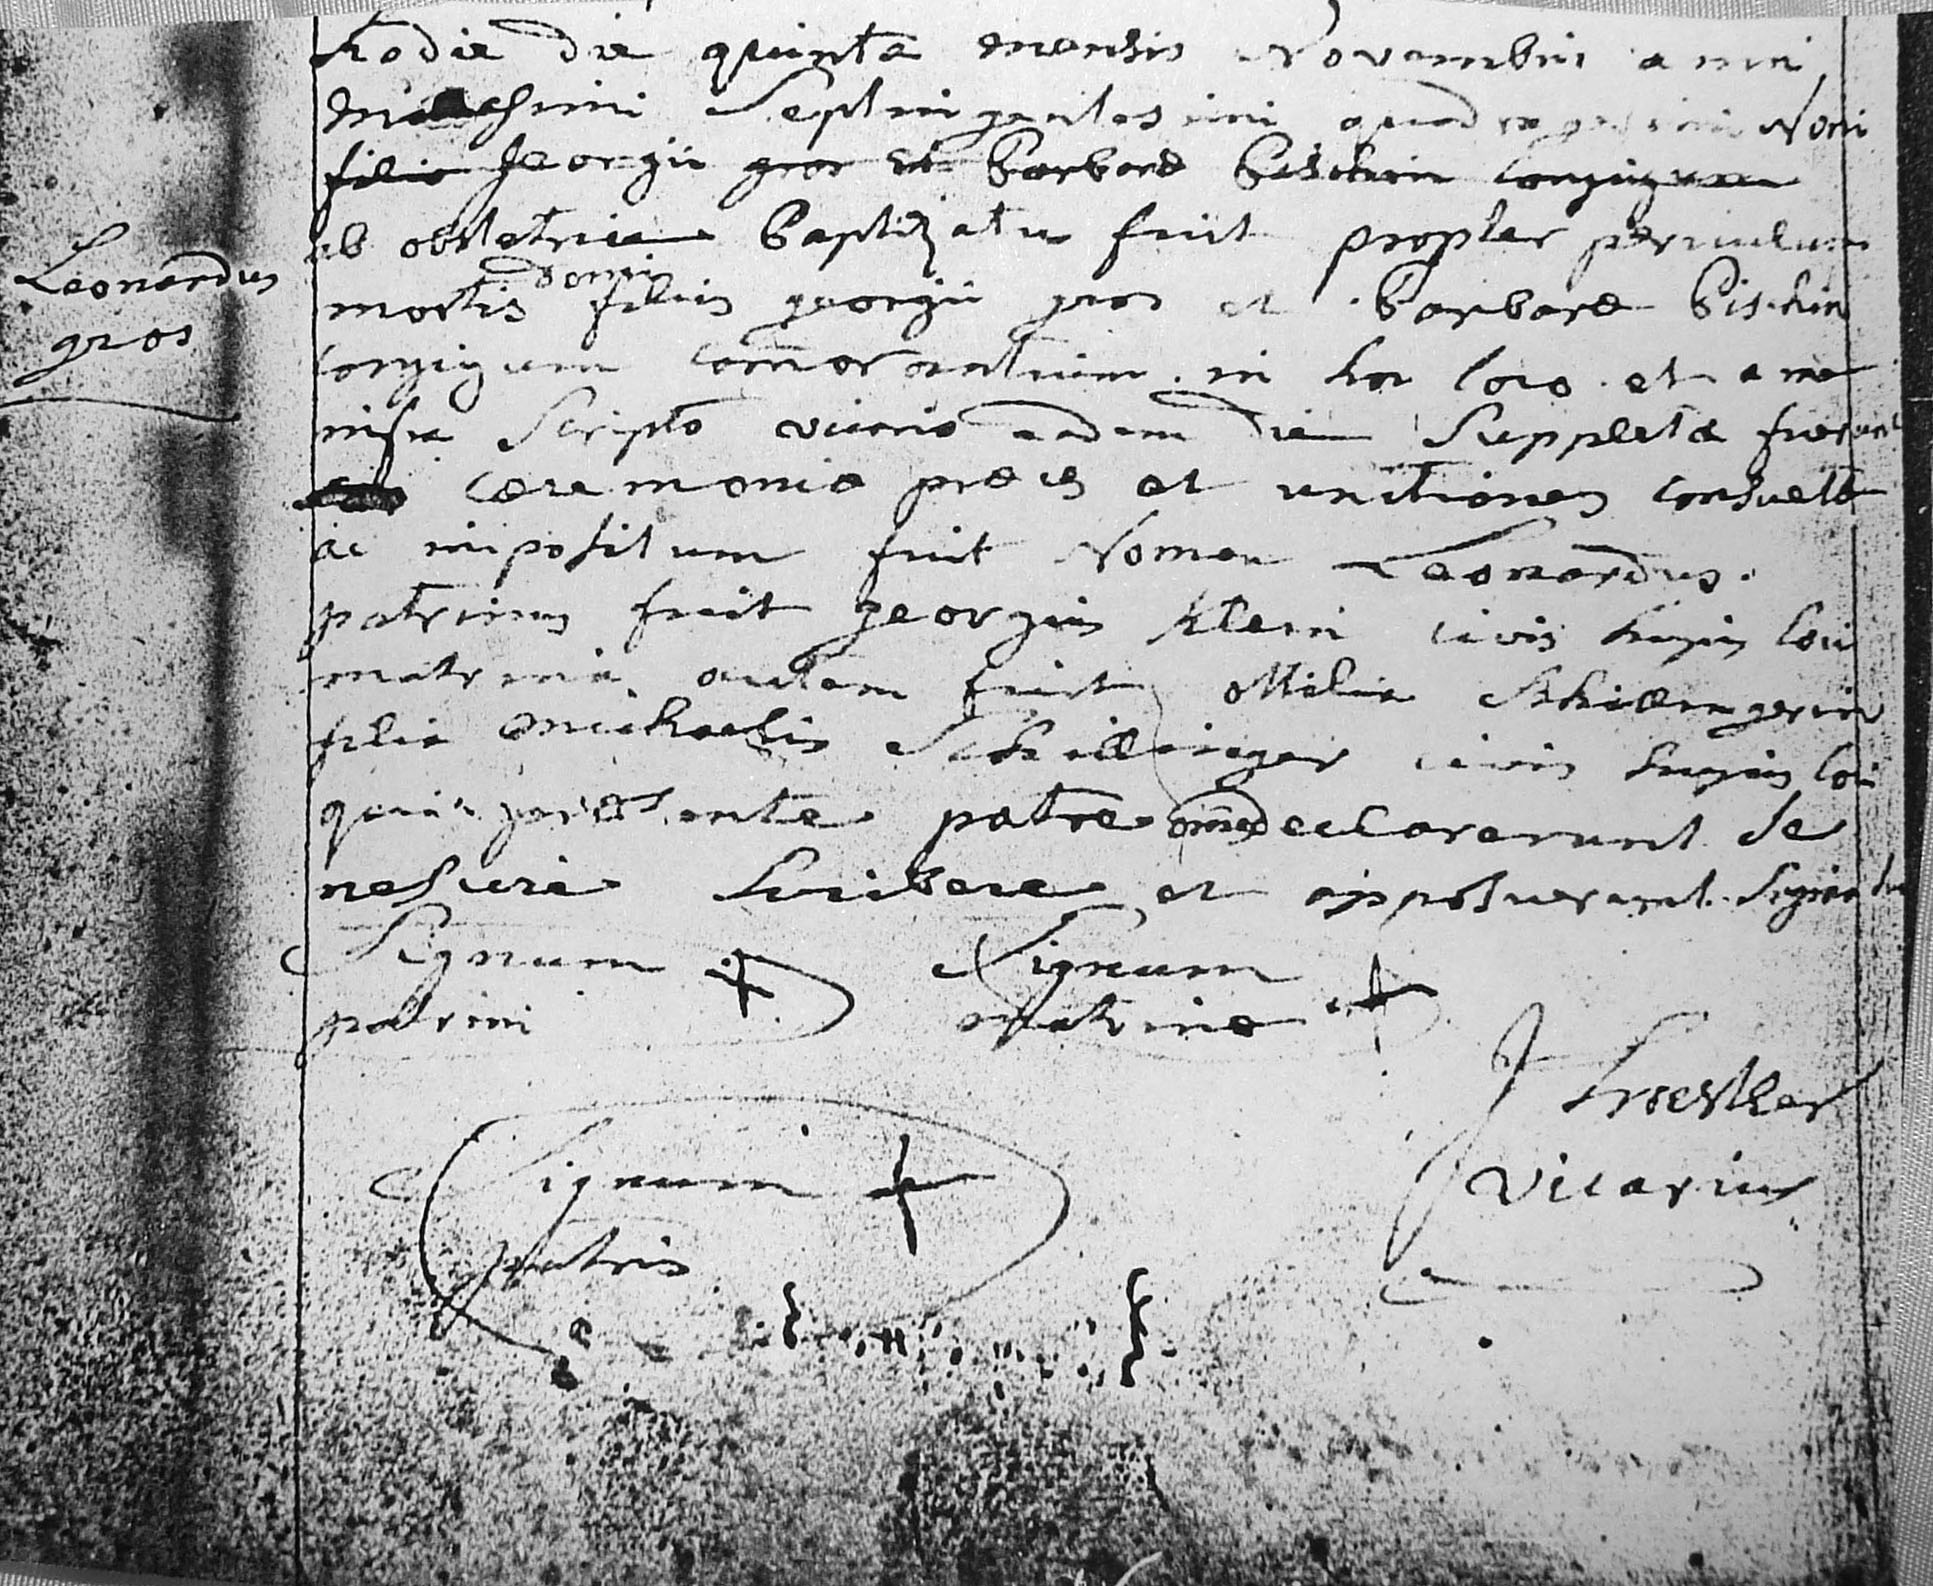 hodie die quinta mensis Novembris anni
millesimi septingentesimi quadragesimi Noni
filio georgii gros et Barbare Bischin conjugum
ab obstetrice Baptizatus fuit propter periculum
Leonardus
gros
domi
mortis filius georgii gros et Barbare Bischin
conjugum comorantium in hoc loco et a me
infra scripto vicario eadem die suppletæ fuerunt
cæremoniæ preces et unctiones consuetæ
ac impositum fuit Nomen Leonardus.
patrinus fuit georgius Klein civis hujus loci
matrina autem fuit ottilia Schillingerin
filia Michaelis Schillinger civis hujus loci
qui præsente patre declararunt se
nescire scribere et apposuerunt signa sua
Signum + Signum +
patrini matrinæ
J
vicarius
Signum +
patris